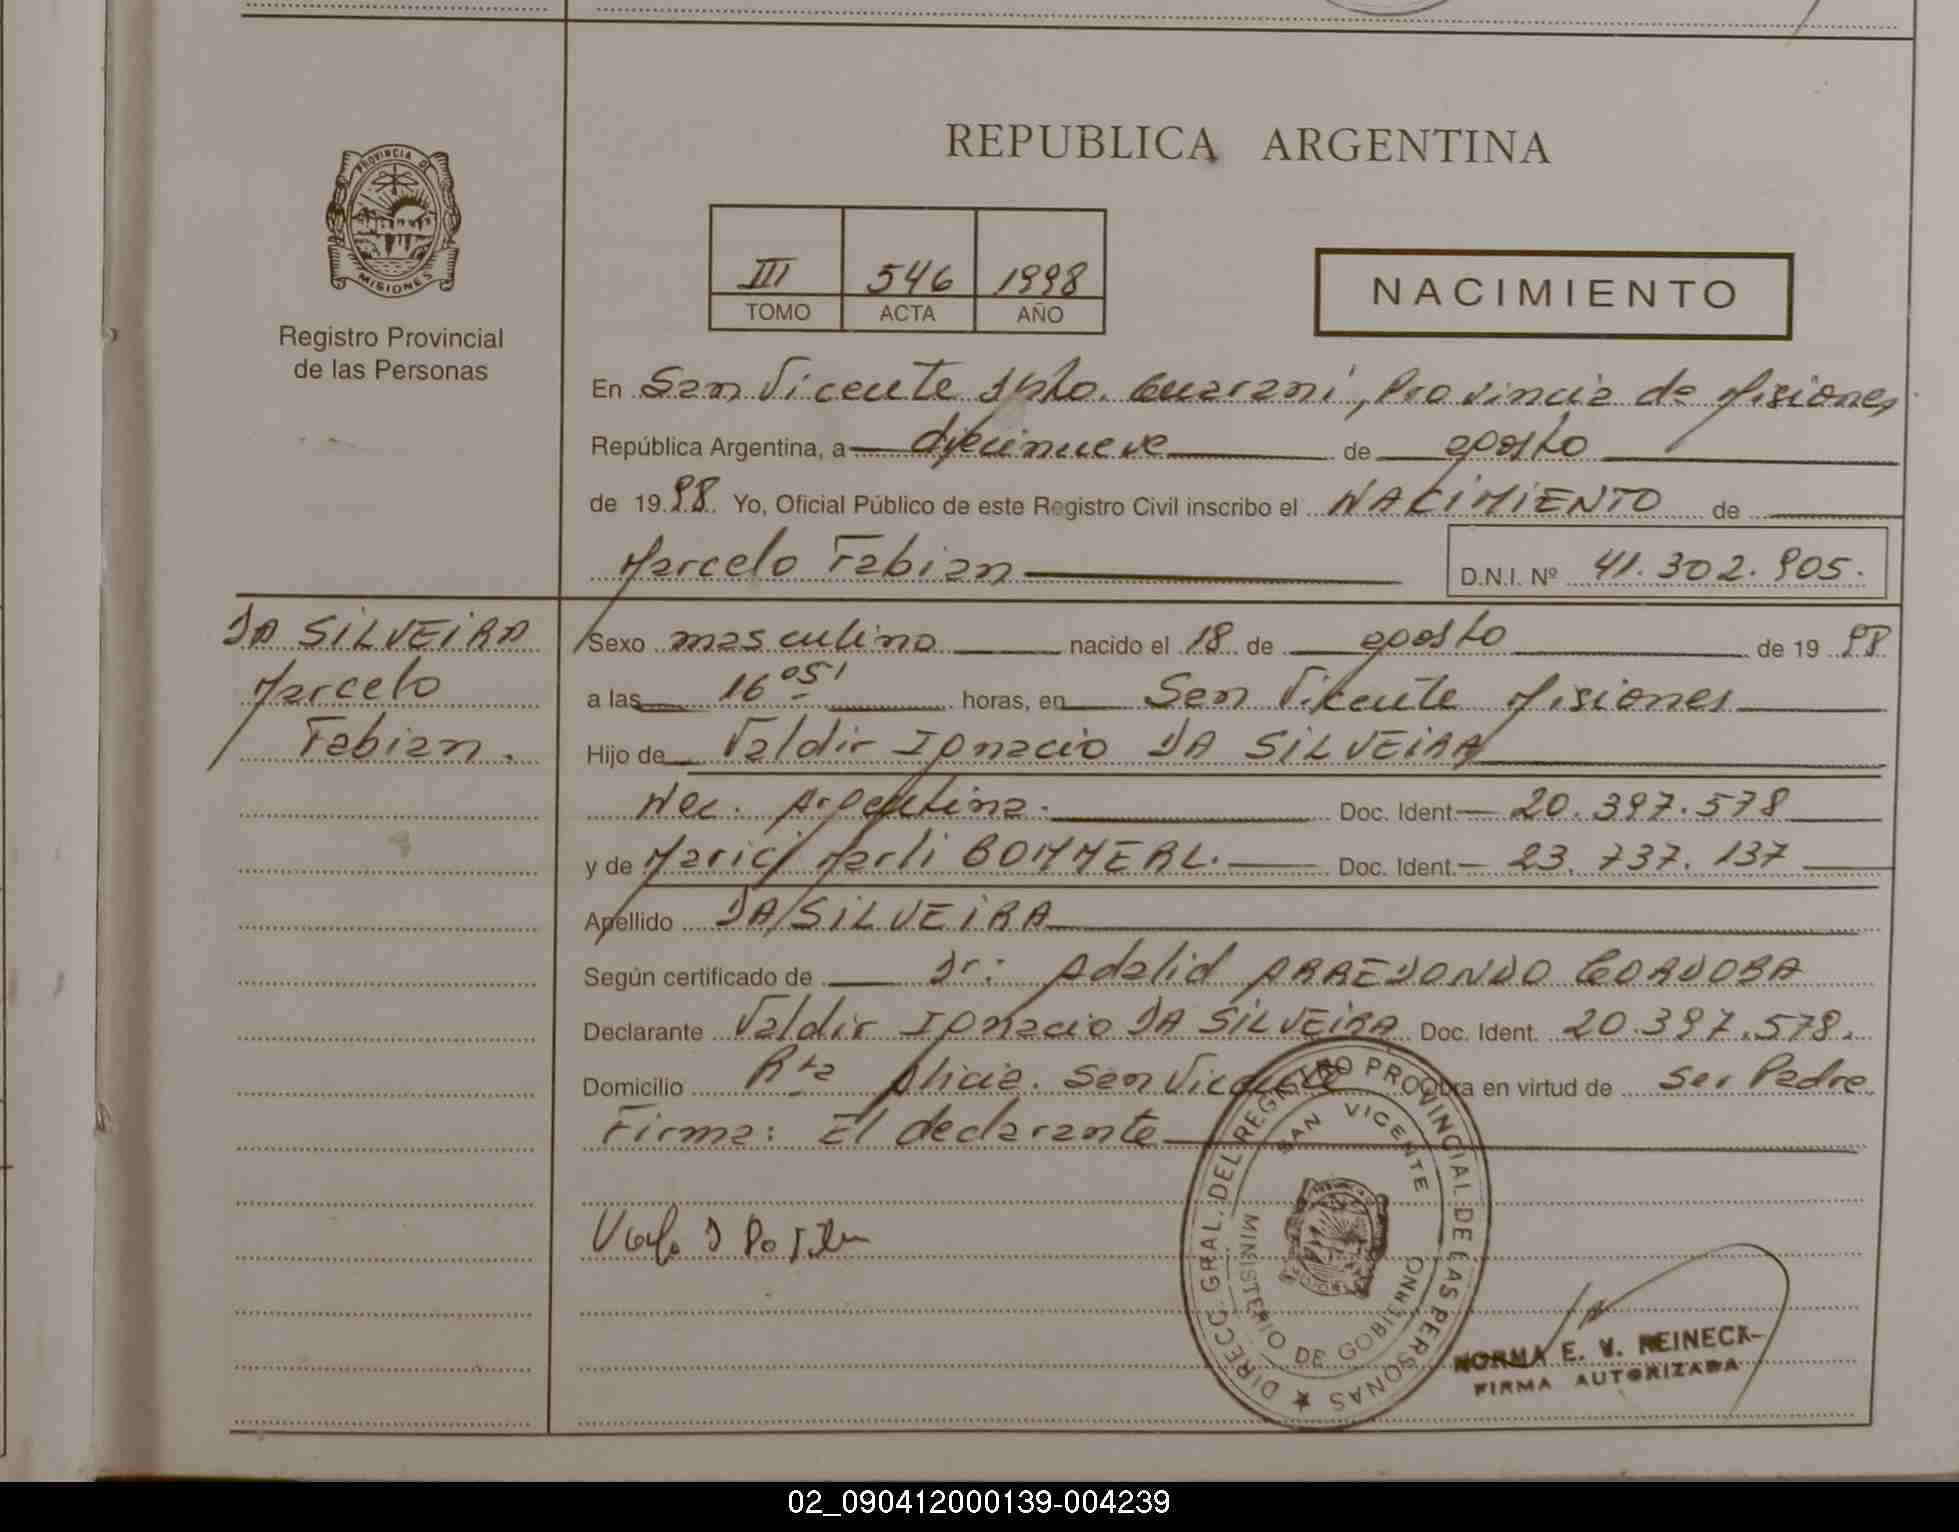 REPUBLICA ARGENTINA
PROVINCIA D
MISIONES
Registro Provincial
de las Personas
III 546 1998
TOMO ACTA AÑO
NACIMIENTO
En San Vicente Dpto. Guarani, Provincia de Misiones
República Argentina, a diecinueve de agosto
de 1998. Yo, Oficial Público de este Registro Civil inscribo el NACIMIENTO de
Marcelo Fabian D.N.I. Nº 41.302.905.
DA SILVEIRA
Marcelo
Fabian.
Sexo masculino nacido el 18 de agosto de 1998
a las 16 05' horas, en San Vicente Misiones
Hijo de Valdir Ignacio DA SILVEIRA
Nac. Argentina. Doc. Ident 20.397.578
y de Marli BOMMERL. Doc. Ident. 23.737.137
Apellido DA SILVEIRA
Según certificado de Dr: Adalid ARREDONDO CORDOBA
Declarante Valdir Ignacio DA SILVEIRA Doc. Ident. 20.397.578.
Domicilio Rta Alicia. San Vicente Obra en virtud de Ser Padre
Firma: El declarante
DIRECC. GRAL. DEL REGISTRO PROVINCIAL DE LAS PERSONAS
SAN VICENTE
MINISTERIO DE GOBIERNO
NORMA E. V. REINECK
FIRMA AUTORIZADA
02_090412000139-004239